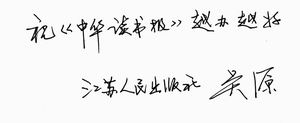 祝《中华读书报》越办越好
江苏人民出版社 吴源